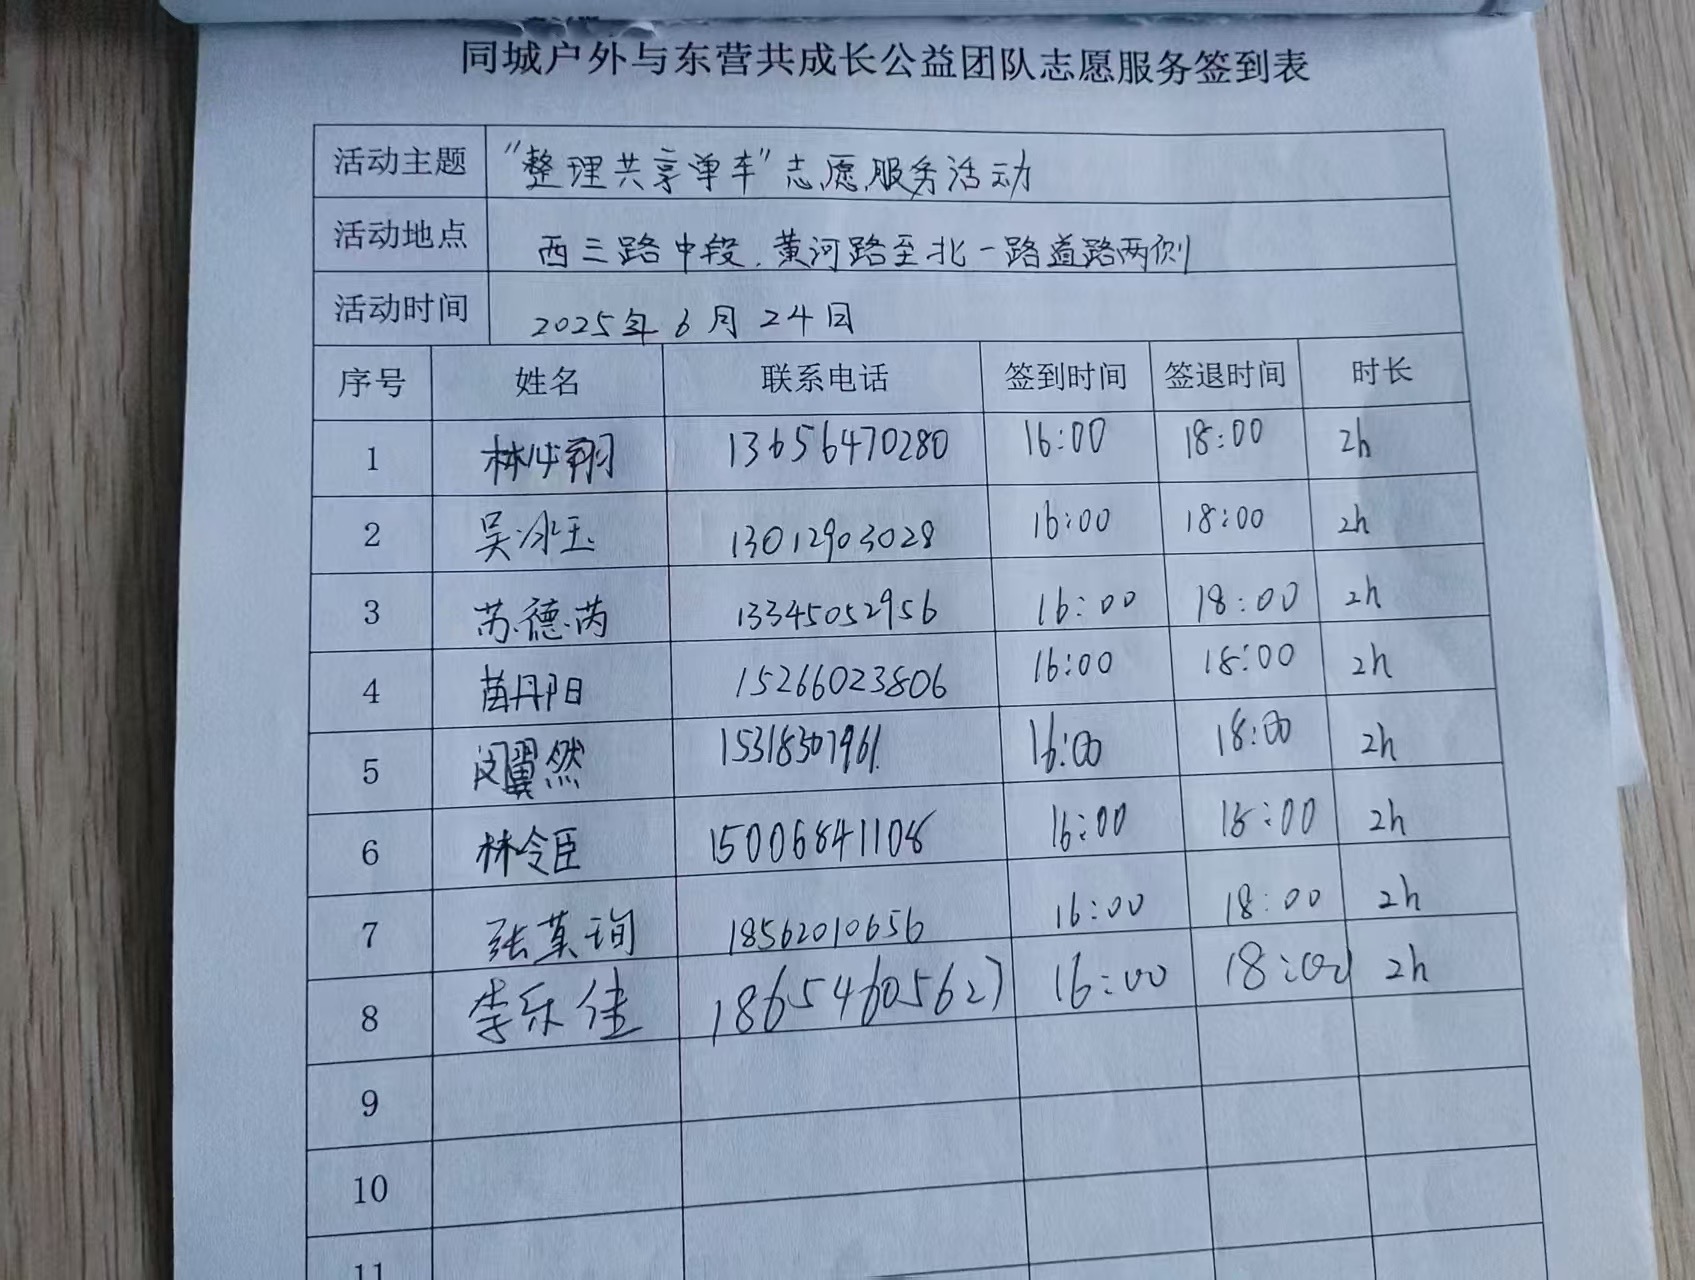 同城户外与东营共成长公益团队志愿服务签到表
活动主题 "整理共享单车"志愿服务活动
活动地点 西三路中段.黄河路至北一路道路两侧
活动时间 2025年6月24日
序号 姓名 联系电话 签到时间 签退时间 时长
1 13656470280 16:00 18:00 2h
2 吴冰玉 13012903028 16:00 18:00 2h
3 苏德芮 13345052956 16:00 18:00 2h
4 苗丹阳 15266023806 16:00 18:00 2h
5 闵翼然 15318307961 16:00 18:00 2h
6 林令臣 15006841108 16:00 18:00 2h
7 张萁询 18562010656 16:00 18:00 2h
8 李乐佳 18654605627 16:00 18:00 2h
9
10
11